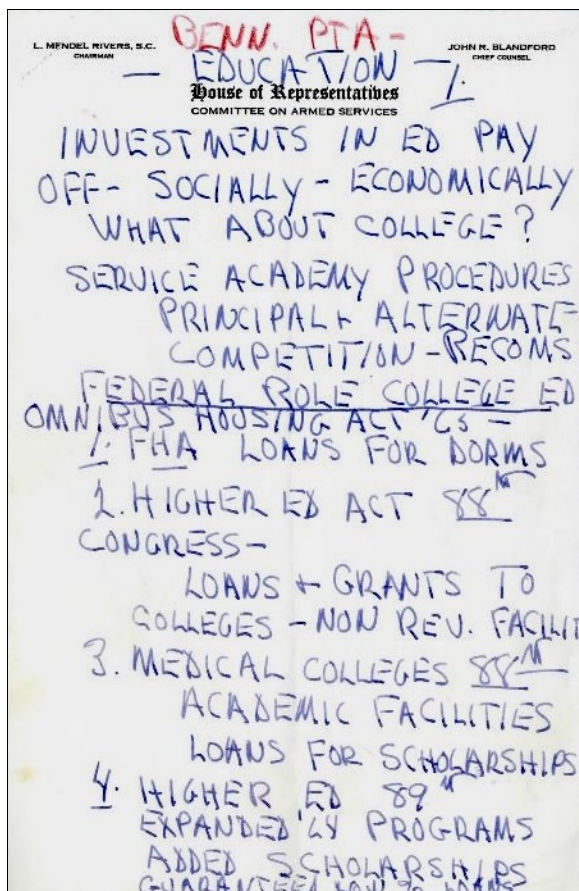 BENN. PTA -
L. MENDEL RIVERS, S.C.
CHAIRMAN
JOHN R. BLANDFORD
CHIEF COUNSEL
- EDUCATION - 1.
House of Representatives
COMMITTEE ON ARMED SERVICES
INVESTMENTS IN ED PAY
OFF - SOCIALLY - ECONOMICALLY
WHAT ABOUT COLLEGE?
SERVICE ACADEMY PROCEDURES
PRINCIPAL + ALTERNATE
COMPETITION - RECOMS
FEDERAL ROLE COLLEGE ED
OMNIBUS HOUSING ACT -
1. FHA LOANS FOR DORMS
2. HIGHER ED ACT 88TH
CONGRESS -
LOANS + GRANTS TO
COLLEGES - NON REV. FACILIT
3. MEDICAL COLLEGES 88TH
ACADEMIC FACILITIES
LOANS FOR SCHOLARSHIPS
4. HIGHER ED 89TH
EXPANDED '64 PROGRAMS
ADDED SCHOLARSHIPS
GUARANTEED